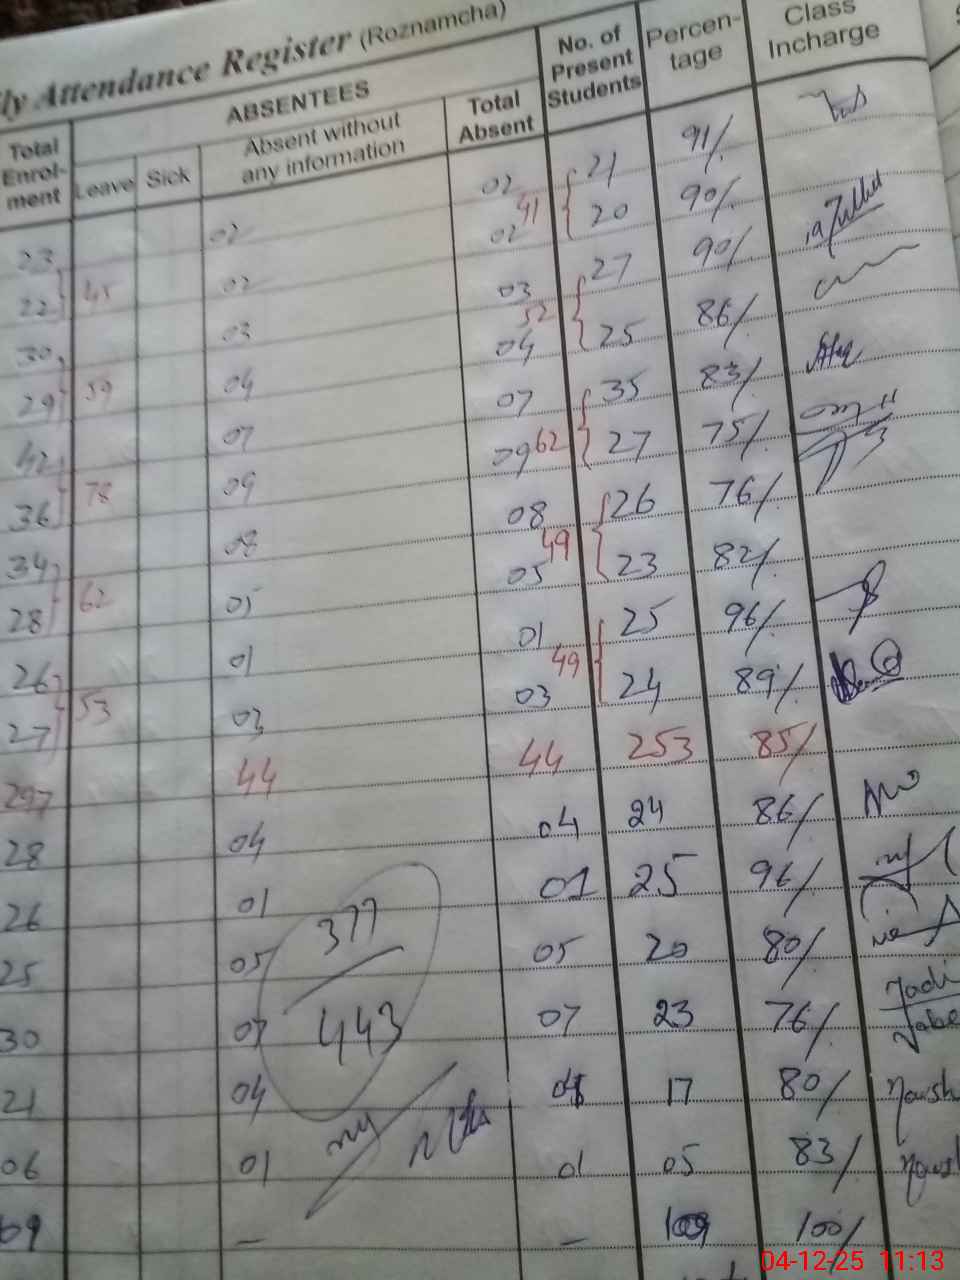 ly Attendance Register (Roznamcha)
Total Enrol- ment ABSENTEES Leave Sick Absent without any information Total Absent No. of Present Students Percen- tage Class Incharge
23 02 02 21 91%
22 45 02 02 41 20 90%
30 03 03 27 90%
29 59 04 04 52 25 86%
42 07 07 35 83%
36 78 09 09 62 27 75%
34 08 08 26 76%
28 62 05 05 49 23 82%
26 01 01 25 96%
27 53 03 03 49 24 89%
297 44 44 253 85%
28 04 04 24 86%
26 01 01 25 96%
25 05 05 20 80%
377
443
30 07 07 23 76%
21 04 04 17 80%
06 01 01 05 83%
09 — — 100%
04-12-25 11:13